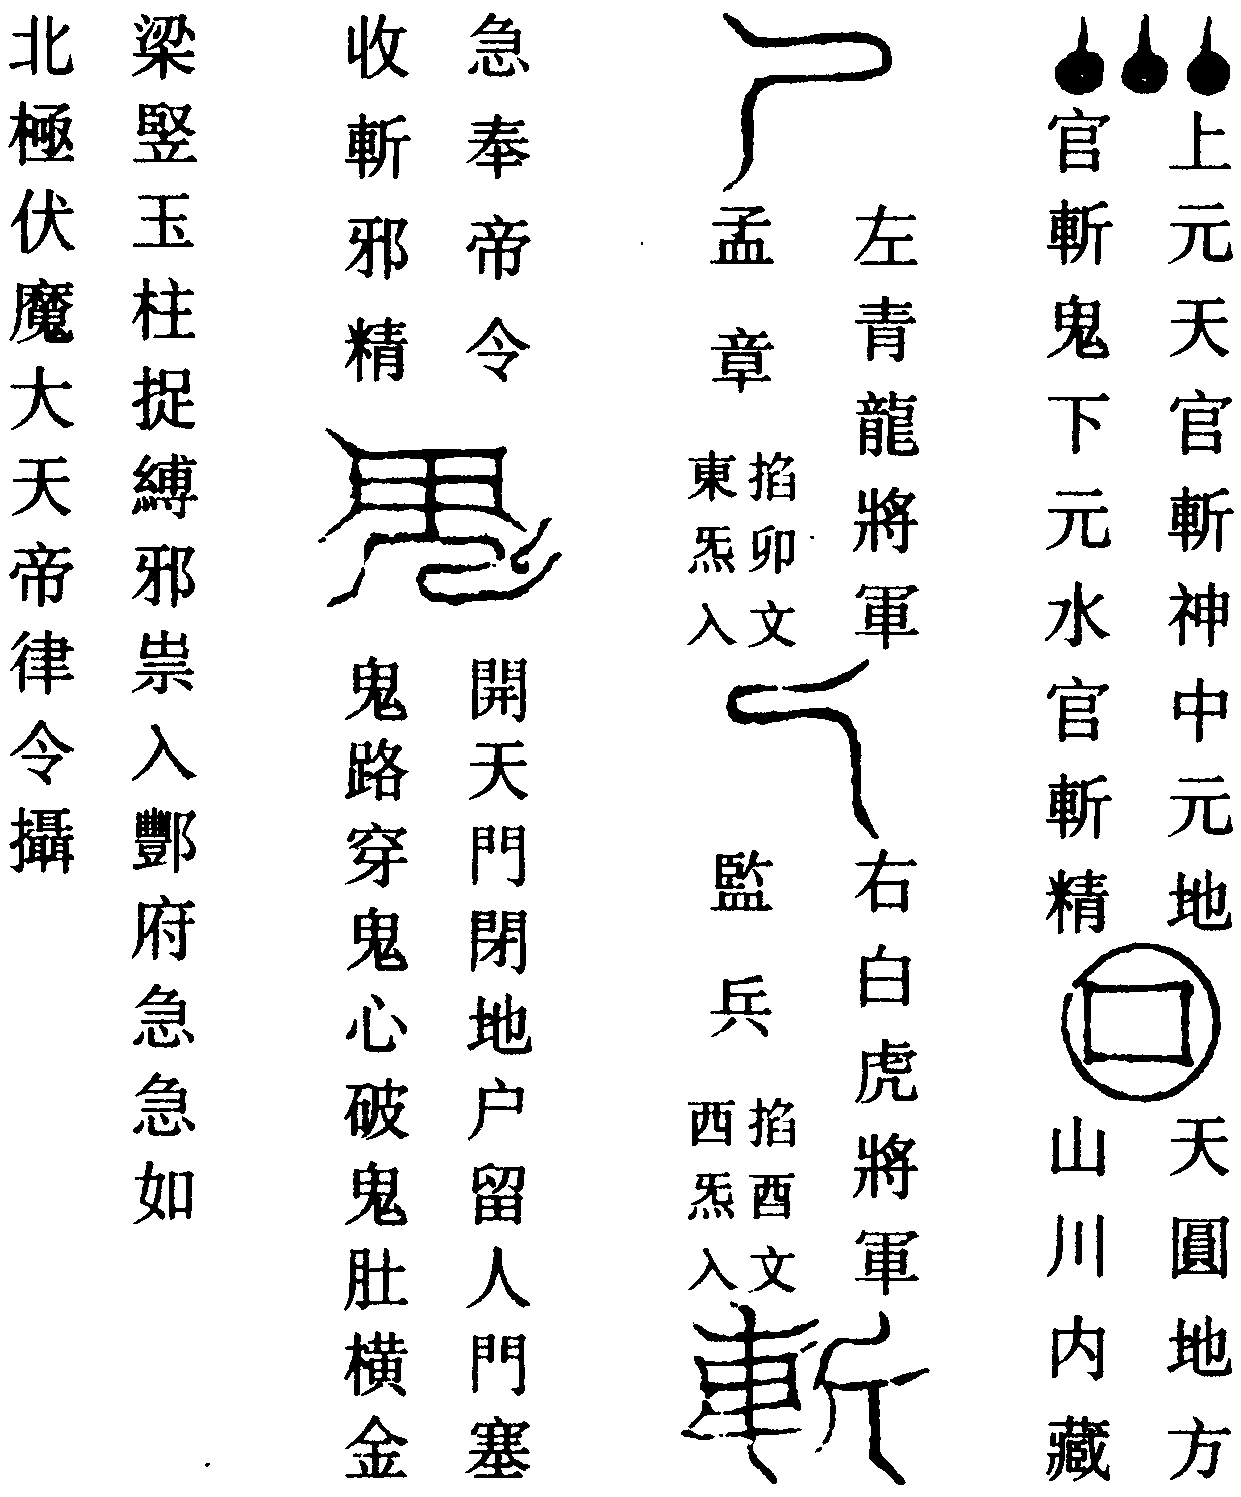 上元天官斬神中元地
官斬鬼下元水官斬精
天圓地方
山川内藏
左青龍將軍
孟章
掐卯文
東炁入
右白虎將軍
監兵
掐酉文
西炁入
斬
急奉帝令
收斬邪精
鬼
開天門閉地户留人門塞
鬼路穿鬼心破鬼肚橫金
梁竪玉柱捉縛邪祟入酆府急急如
北極伏魔大天帝律令攝